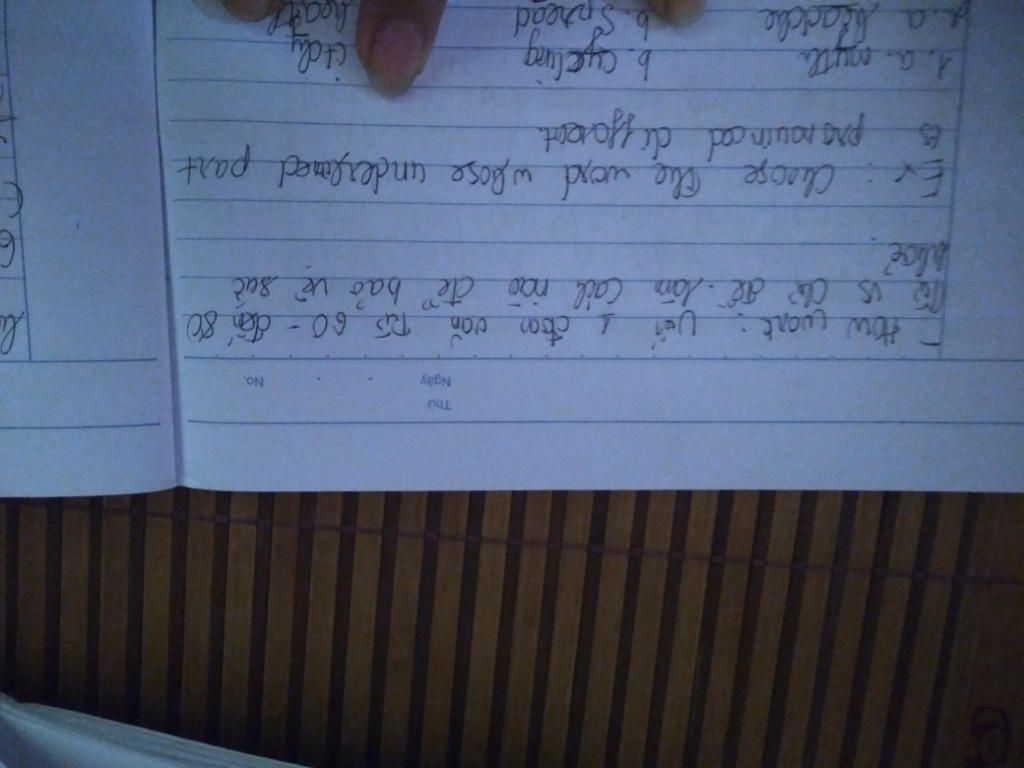 Thứ
Ngày No.
- How work: Viết 1 đoạn văn từ 60 - đến 80
từ vs chủ đề làm cách nào để bảo vệ sức
khoẻ
Ex: Choose the word whose underlined part
is pronouned different
1. a. myth b. cycling
a. headache b. Spread